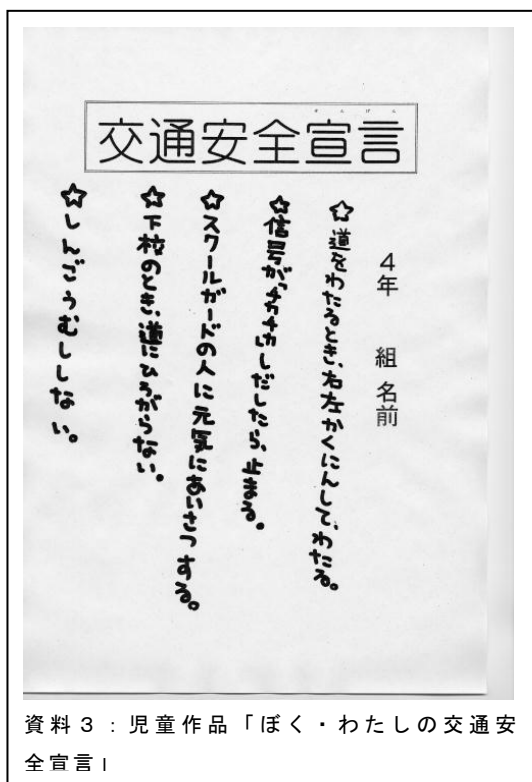 交通安全宣言
せんげん
4年 組 名前
☆道をわたるとき、右左かくにんして、わたる。
☆信号がチカチカしだしたら、止まる。
☆スクールガードの人に元気にあいさつする。
☆下校のとき、道にひろがらない。
☆しんごうむししない。
資料3:児童作品「ぼく・わたしの交通安
全宣言」